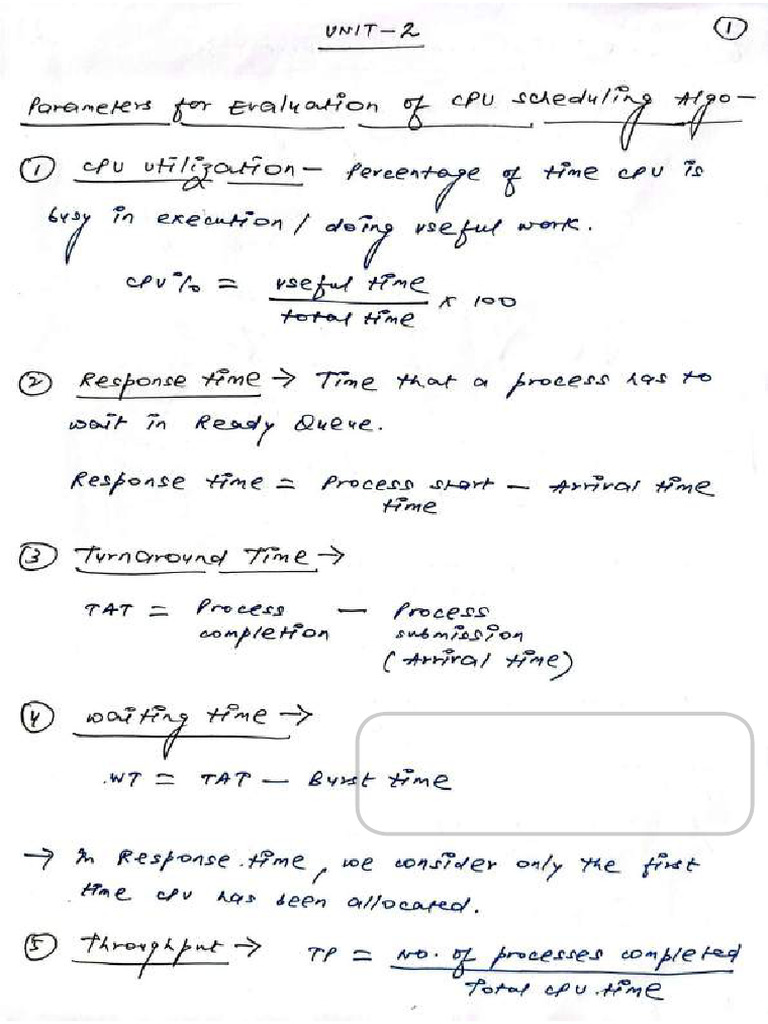 UNIT-2
1
Parameters for Evaluation of CPU scheduling Algo-
1 CPU utilization - Percentage of time CPU is
busy in execution / doing useful work.
CPU% = useful time / total time x 100
2 Response time → Time that a process has to
wait in Ready Queue.
Response time = Process start time - Arrival time
3 Turnaround Time →
TAT = Process completion - Process submission
(Arrival time)
4 waiting time →
WT = TAT - Burst time
→ In Response time, we consider only the first
time CPU has been allocated.
5 Throughput → TP = No. of processes completed / Total CPU time